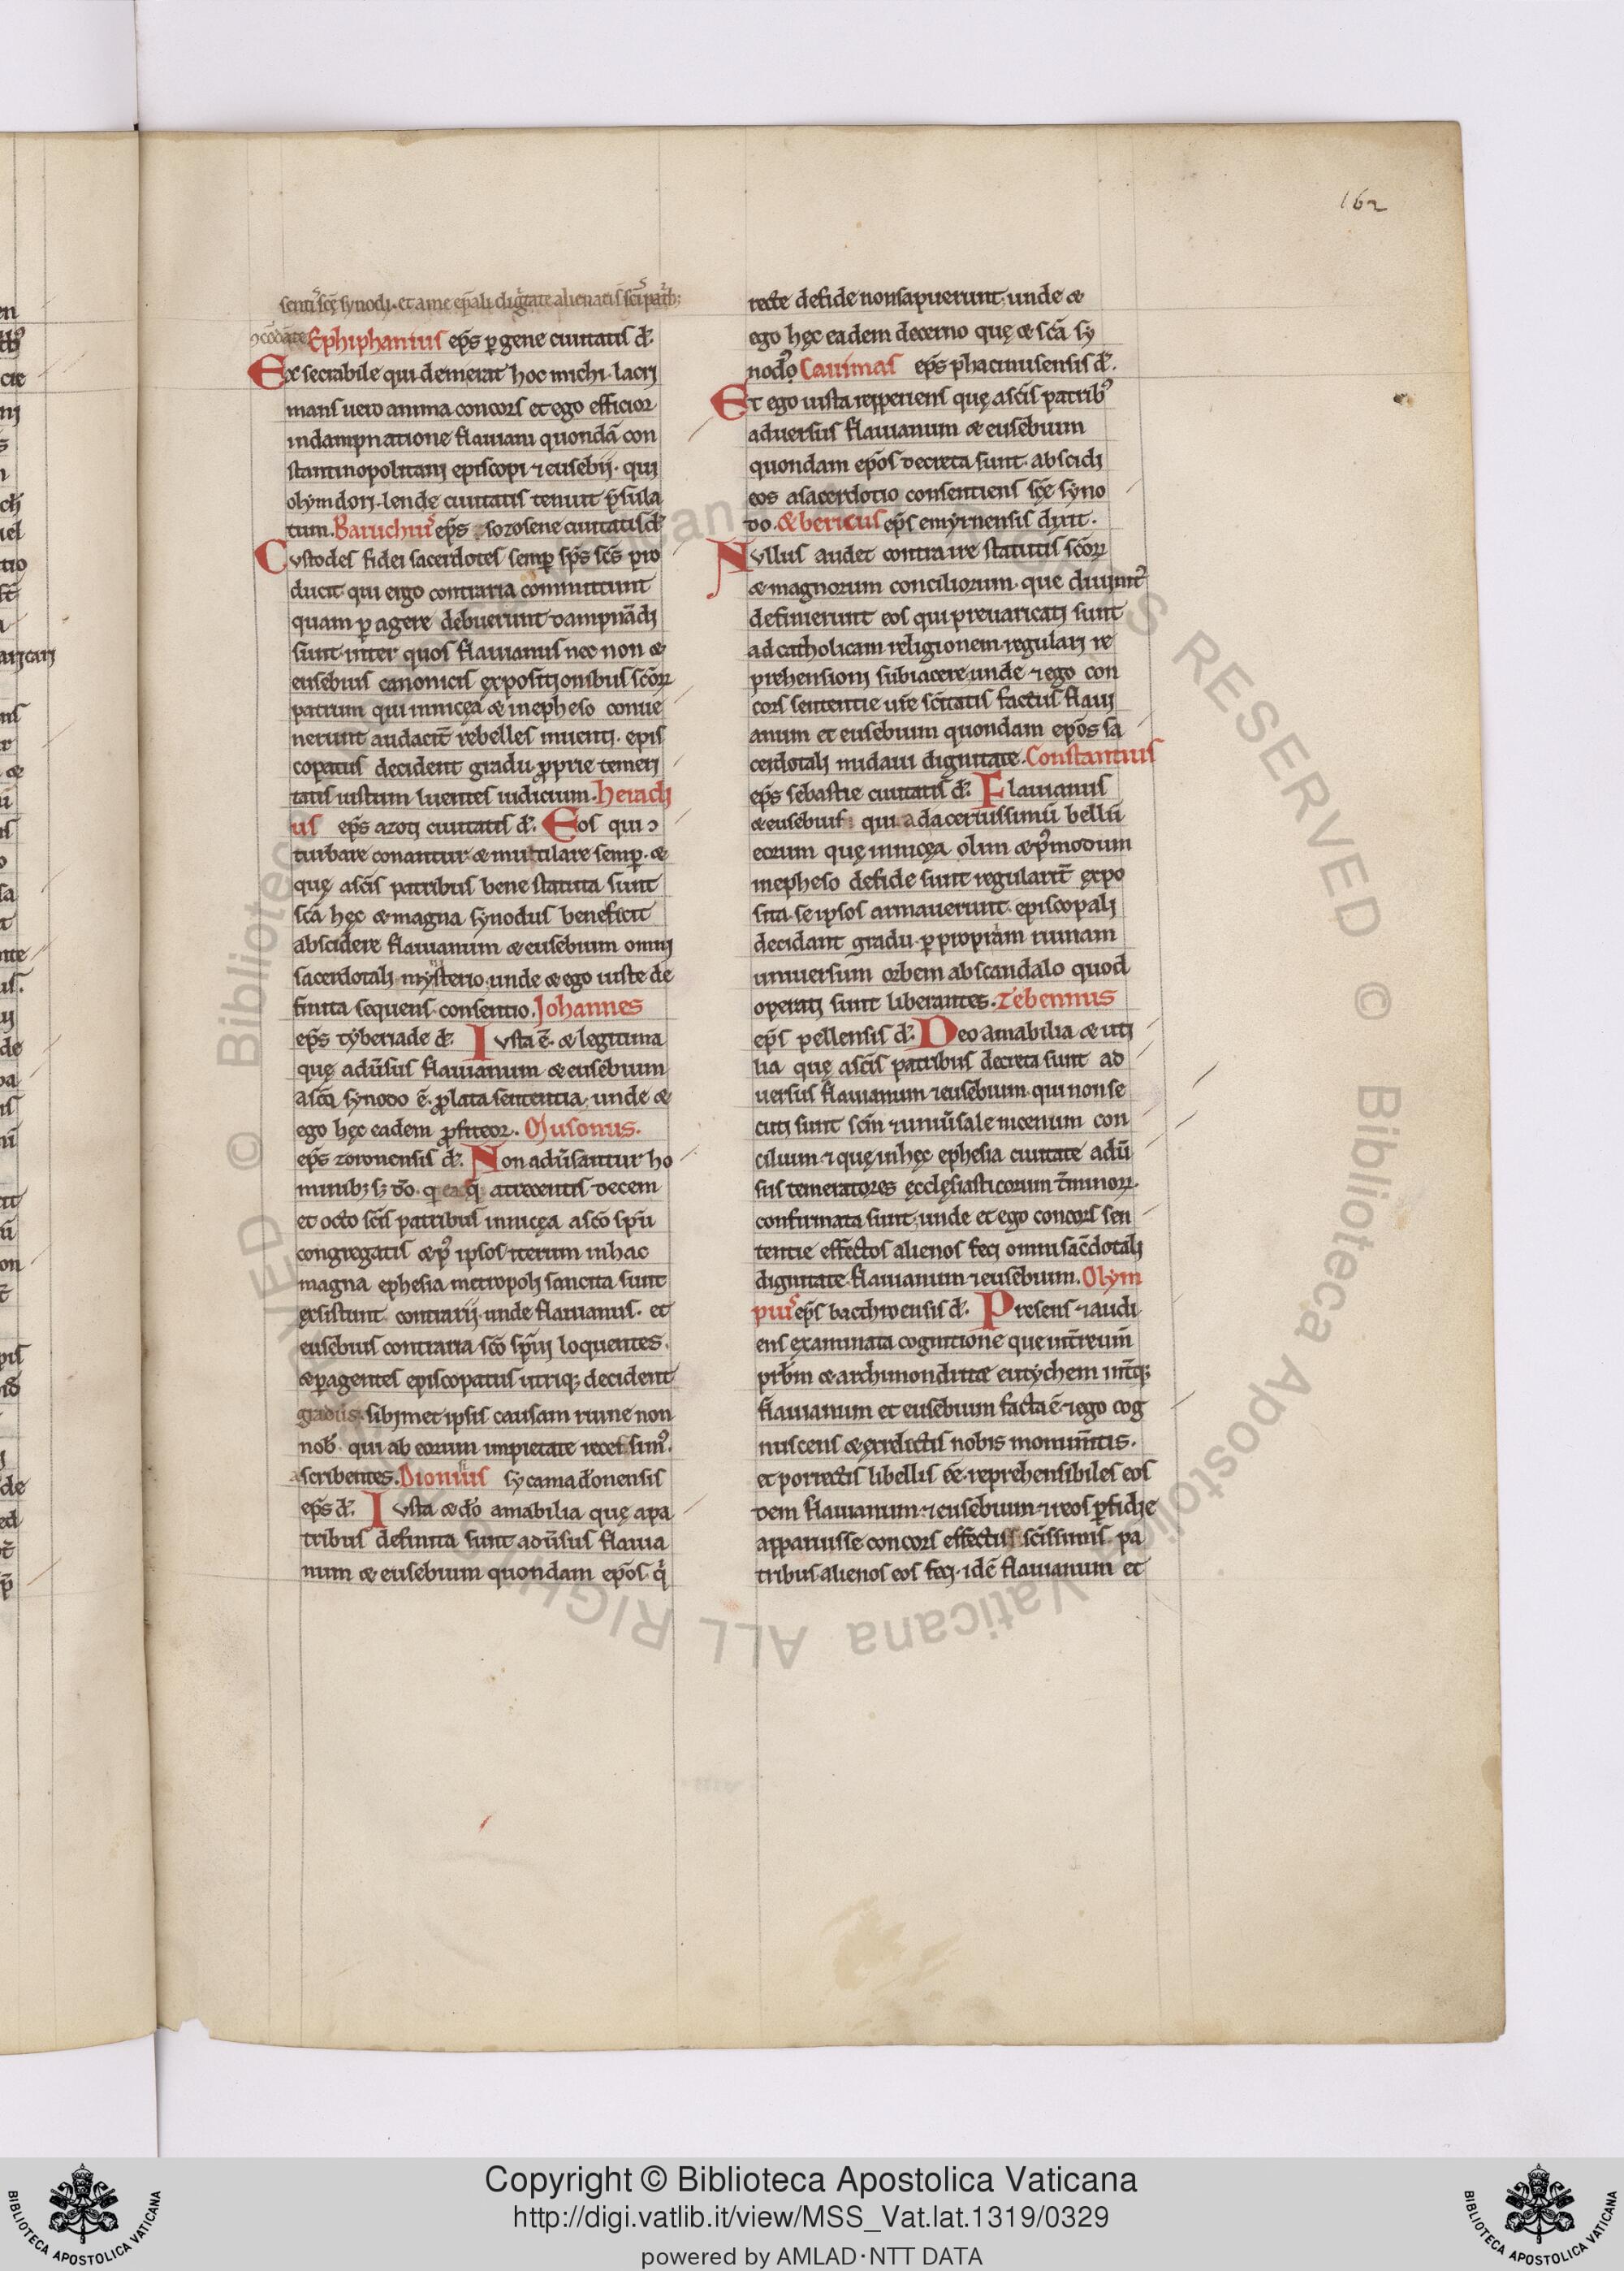 162
senti᷒ scę synodi. et a me ep̄ali dignitate alienati s̄ sci patrib;
Ephiphanius ep̄s pergene ciuitatis d̄.
Exsecrabile qui demerat hoc michi. lacri
mans uero anima concors et ego efficior
indampnatione flauiani quondā con
stantinopolitani episcopi ⁊ eusebij. qui
olymdori. lende ciuitatis tenuit p̄sula
tum. Baruchius ep̄s sozosene ciuitatis d̄
Custodes fidei sacerdotes semp̄ sp̄s scs̄ pro
ducit qui ergo contraria committunt
quam p̄agere debuerunt dampnādi
sunt inter quos flauianus nec non &
eusebius canonicis expositionibus scōꝝ
patrum qui innicęa & inepheso conue
nerunt audacit̄ rebelles inuenti. epis
copatus decident gradu. ꝓprie temeri
tatis iustum luentes iudicium. Heracli
us ep̄s azoti ciuitatis d̄. Eos qui ɔ
turbare conantur & mutilare semp̄. &
quę ascīs patribus bene statuta sunt
scā hęc & magna synodus beneficit
abscidere flauianum & eusebium omni
sacerdotali mysterio. unde & ego iuste de
finita sequens. consentio. Johannes
ep̄s tyberiade d̄. Iusta ē. & legitima
quę adūsus flauianum & eusebium
ascā synodo ē. ꝓlata sententia. unde &
ego hęc eadem ꝓfiteor. Musonius.
ep̄s zoronensis d̄. Non adūsantur ho
minib; s; dō. q̄ atrecentis decem
et octo scīs patribus innicęa ascō sp̄u
congregatis & p᷒ ipsos iterum inhac
magna ephesia metropoli sancita sunt
exsistunt contrarij. unde flauianus. et
eusebius contraria scō sp̄ui loquentes.
& p̄agentes episcopatus utriq; decident
gradus. sibimet ipsis causam ruine non
nob̄. qui ab eorum impietate recessim᷒.
ascribentes. Dionisius sycamadonensis
ep̄s d̄. Iusta & dō amabilia quę apa
tribus definita sunt adūsus flauia
num & eusebium quondam ep̄os. q̄
recte defide nonsapuerunt. unde &
ego hęc eadem decerno quę & scā sy
nodo. Cauimas ep̄s phacinusensis d̄.
Et ego iusta repperiens quę ascīs patrib᷒
aduersus flauianum & eusebium
quondam ep̄os decreta sunt. abscidi
eos asacerdotio consentiens scē syno
do. &bericus ep̄s emyrnensis dixit.
Nullus audet contraire statutis scōꝝ
& magnorum conciliorum. que diuinit᷒
definierunt eos qui preuaricati sunt
ad catholicam religionem. regulari re
prehensioni subiacere. unde ⁊ ego con
cors sententie ur̄e scītatis factus flaui
anum et eusebium quondam ep̄os sa
cerdotali nudaui dignitate. Constantius
ep̄s sebastie ciuitatis d̄. Flauianus
& eusebius qui adacertissimū bellū
eorum quę innicęa olim & p᷒modum
inepheso defide sunt regularit̄ expo
sita. se ipsos armauerunt. episcopali
decidant gradu. ꝑpropriam ruinam
uniuersum orbem abscandalo quod
operati sunt liberantes. Zebennus
ep̄s pellensis d̄. Deo amabilia & uti
lia quę ascīs patribus decreta sunt ad
uersus flauianum ⁊ eusebium. qui non se
cuti sunt scm̄ ⁊ uniūsale nicenum con
cilium. ⁊ quę inhęc ephesia ciuitate adū
sus temeratores ęcclesiasticorum t̄minoꝝ.
confirmata sunt. unde et ego concors sen
tentie effectos alienos feci omni sac̄dotali
dignitate. flauianum ⁊ eusebium. Olym
pius ep̄s bacthroensis d̄. Presens ⁊ audi
ens examinata cognitione que int̄ reum̄
prb̄m & archimondritæ eutychem int̄q;
flauianum et eusebium facta ē. ⁊ ego cog
nuscens & exrelictis nobis monum̄tis.
et porrectis libellis ēē. reprehensibiles eos
dem flauianum ⁊ eusebium. ⁊ reos ꝑfidie
apparuisse concors effectus scissimis pa
tribus. alienos eos feci. idē flauianum et
Copyright © Biblioteca Apostolica Vaticana
http://digi.vatlib.it/view/MSS_Vat.lat.1319/0329
powered by AMLAD·NTT DATA
BIBLIOTECA APOSTOLICA VATICANA
BIBLIOTECA APOSTOLICA VATICANA
© Biblioteca Apostolica Vaticana ALL RIGHTS RESERVED © Biblioteca Apostolica Vaticana ALL RIGHTS RESERVED